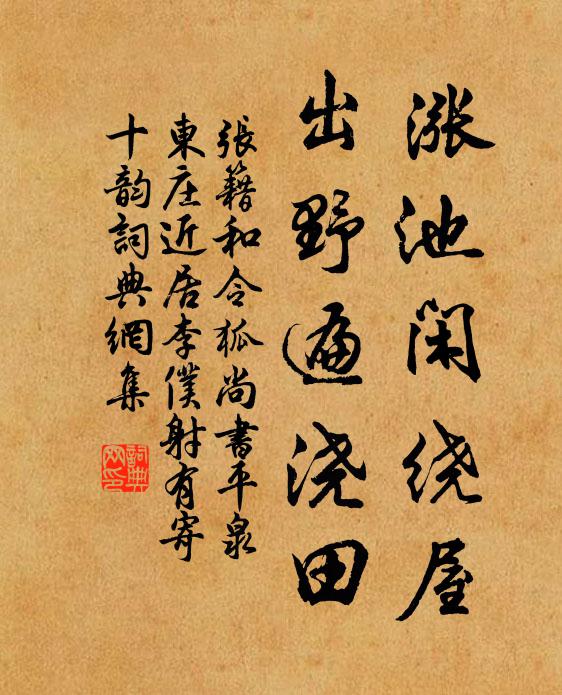 漲池闲绕屋
出野遍浇田
張籍和令狐尚書平泉
東庄近居李僕射有寄
十韵詞典網集
詞典
网印